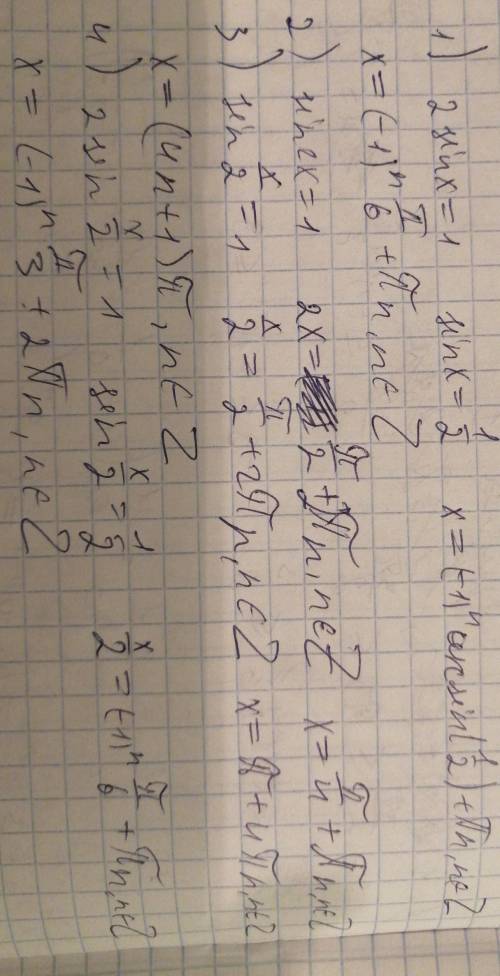 1) 2 sin x = 1 sin x = 1/2 x = (-1)^n arcsin(1/2) + πn, n∈Z
x = (-1)^n π/6 + πn, n∈Z
2) sin 2x = 1 2x = π/2 + 2πn, n∈Z x = π/4 + πn, n∈Z
3) sin x/2 = 1 x/2 = π/2 + 2πn, n∈Z x = π + 4πn, n∈Z
x = (4n+1)π, n∈Z
4) 2 sin x/2 = 1 sin x/2 = 1/2 x/2 = (-1)^n π/6 + πn, n∈Z
x = (-1)^n π/3 + 2πn, n∈Z